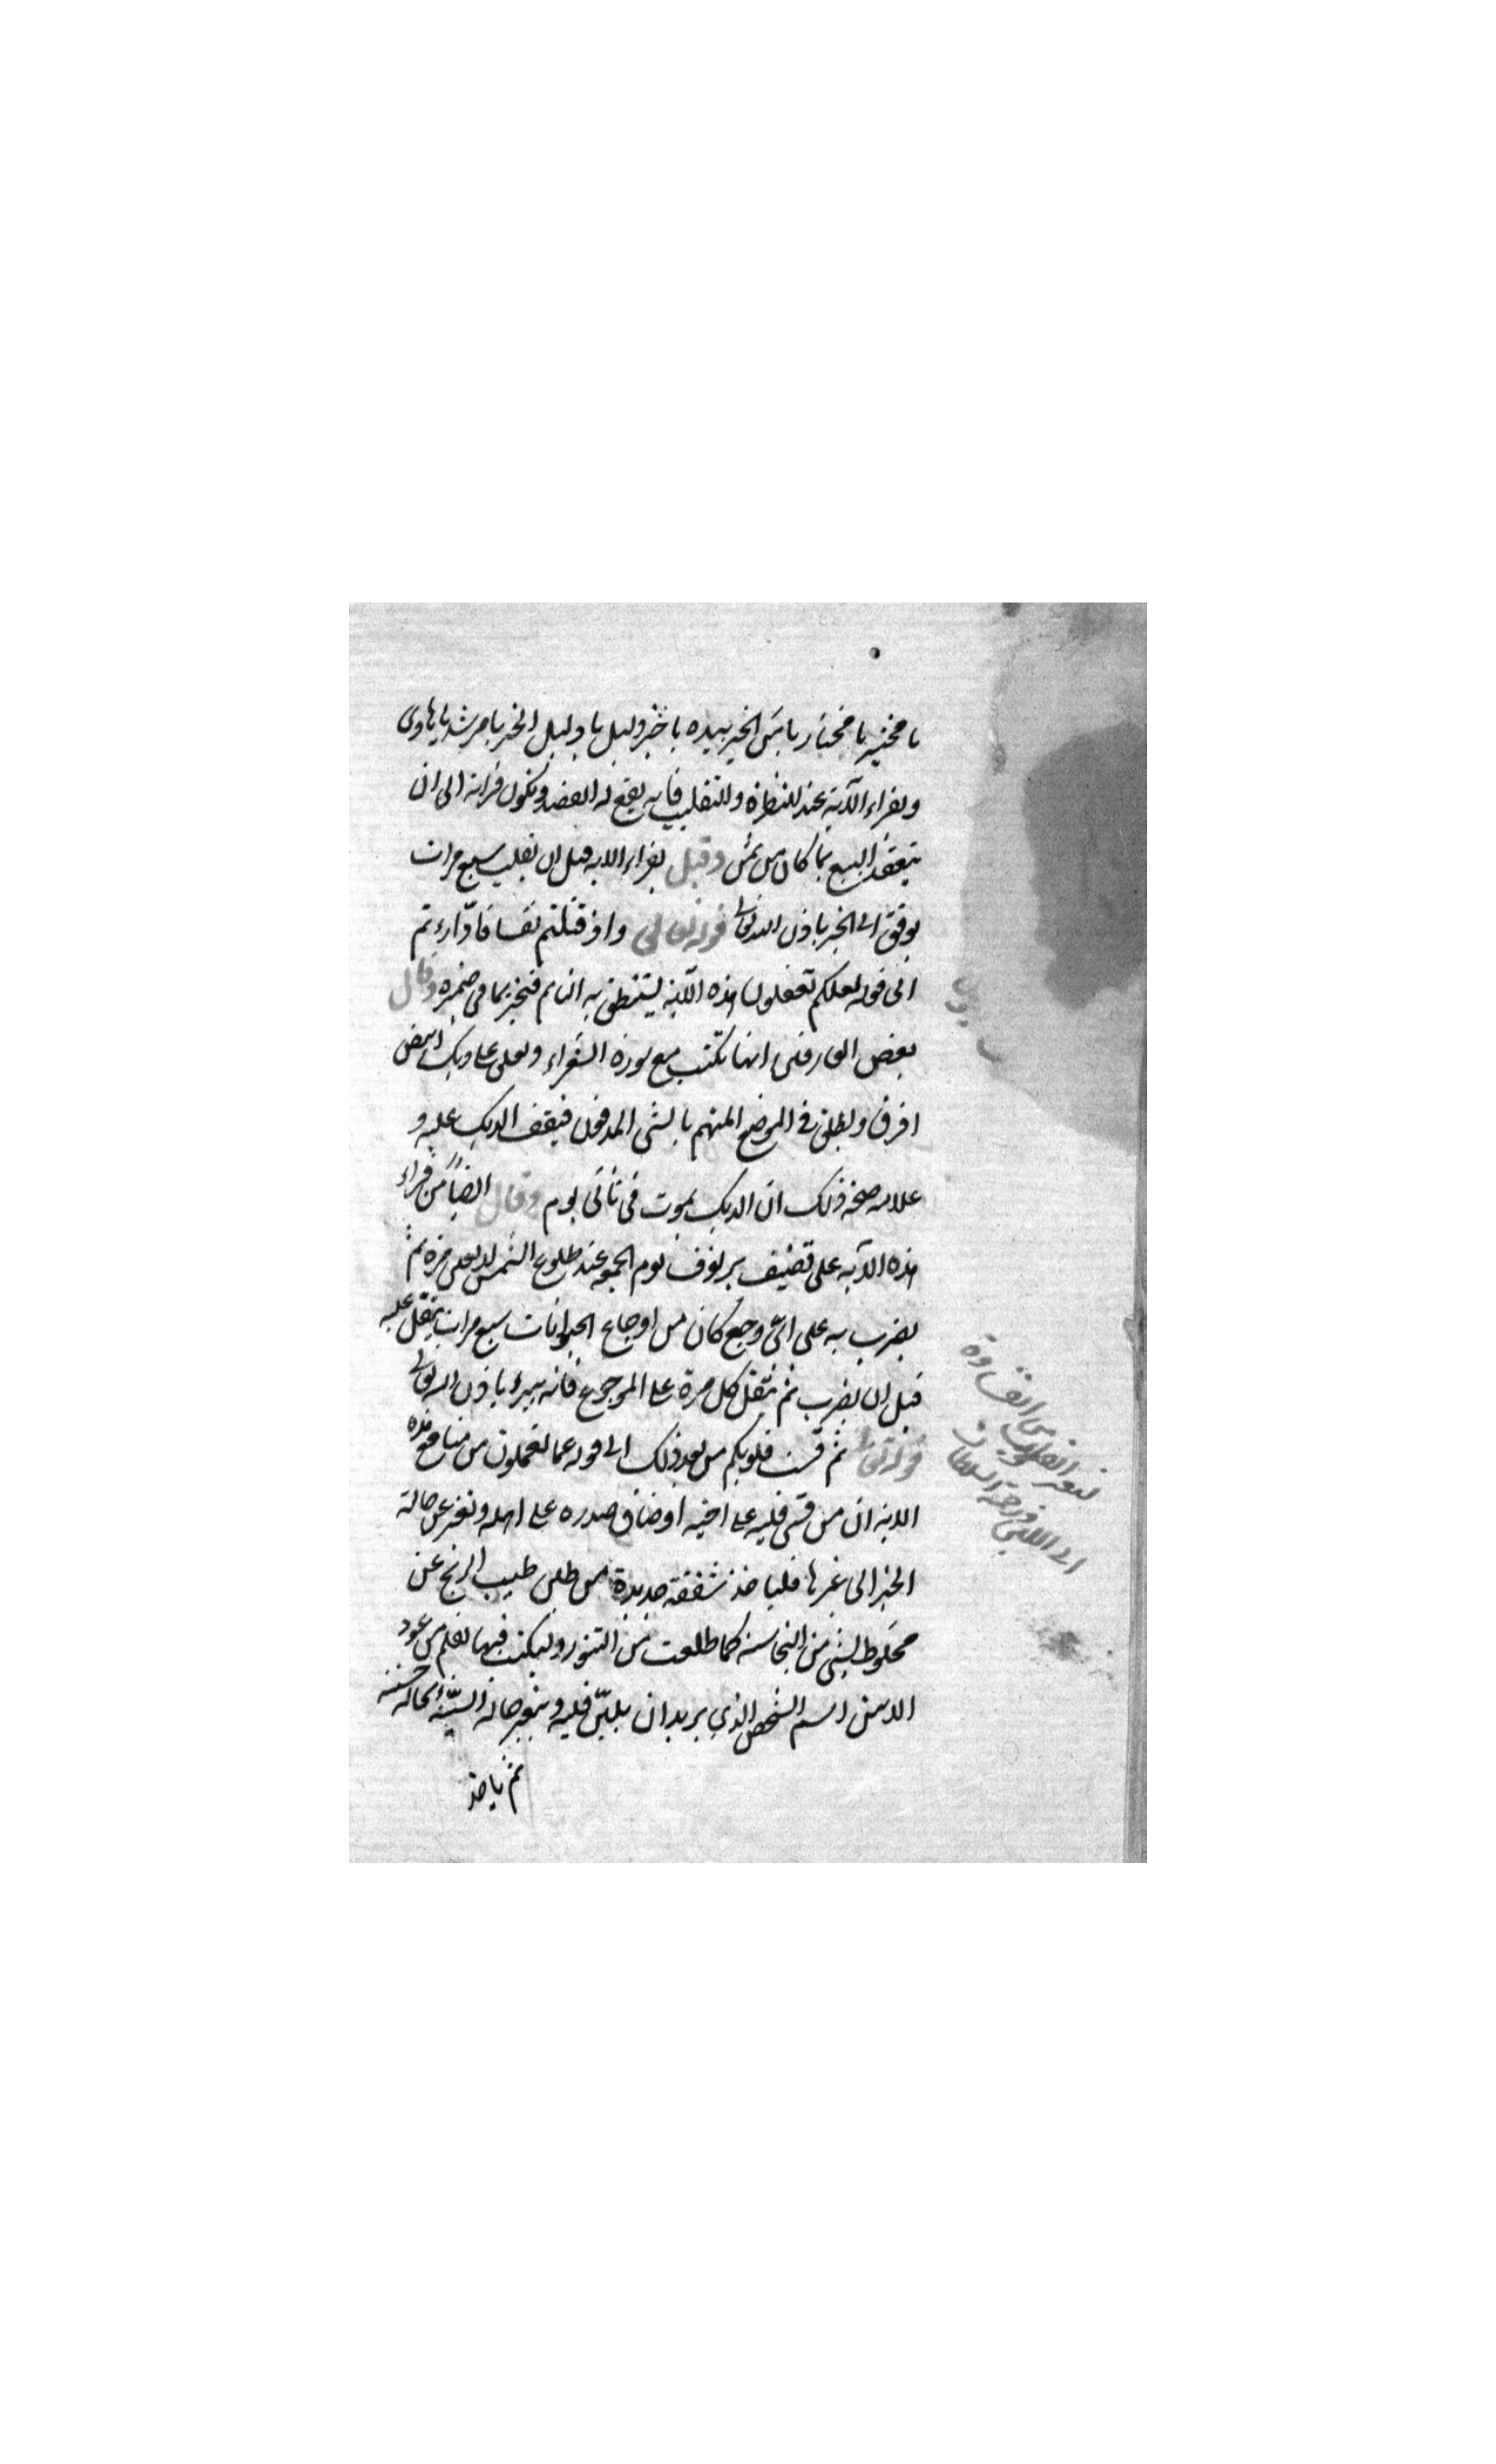 يا مخير يا مختار يا من الخير بيده يا خير دليل يا دليل الخير يا مرشد يا هادى
ويقراء الآية عند النظرة والتقليب فانه يقع له القصد وتكون قراته الى ان
ينعقد البيع بما كان من ثمن وقيل يقراء الايه قبل ان يقلب سبع مرات
يوفق الى الخير باذن الله تعالى قوله تعالى واذ قتلتم نفسا فادّارءتم
الى قوله لعلكم تعقلون هذه الآية ليستنطق به النايم فيخبر بما فى ضميره وقال
بعض العارفين انها تكتب مع سورة الشعراء وتعلق على ديك ابيض
افرق ويطلق فى الموضع المتهم بالشى المدفون فيقف الديك عليه و
علامه صحة ذلك ان الديك يموت فى ثانى يوم وقال ايضاً من قراء
هذه الايه على قضيف يوم الجمعه عند طلوع الشمس مرة ثم
يضرب به على اىّ وجع كان من اوجاع الحيوانات سبع مرات يتفل عليه
قبل ان يضرب ثم يتفل كل مرة على الموجوع فانه يبرء باذن الله تعالى
قوله تعالى ثم قست قلوبكم من بعد ذلك الى قوله عما تعملون من منافع هذه
الايه ان من قسى قلبه على اخيه او ضاق صدره على اهله وتغير عن حالة
الخير الى غيرها فلياخذ شقفة جديدة من طين طيب الريح غير
مخلوط بشى من النجاسة كما طلعت من التنور وليكتب فيها بقلم من عود
الاس اسم الشخص الذي يريد ان يليّن قلبه ويتغير حاله السيّئة بحالة حسنة
ثم ياخذ
لتغير القلوب من القساوة
الى اللين ورحمة السلطان